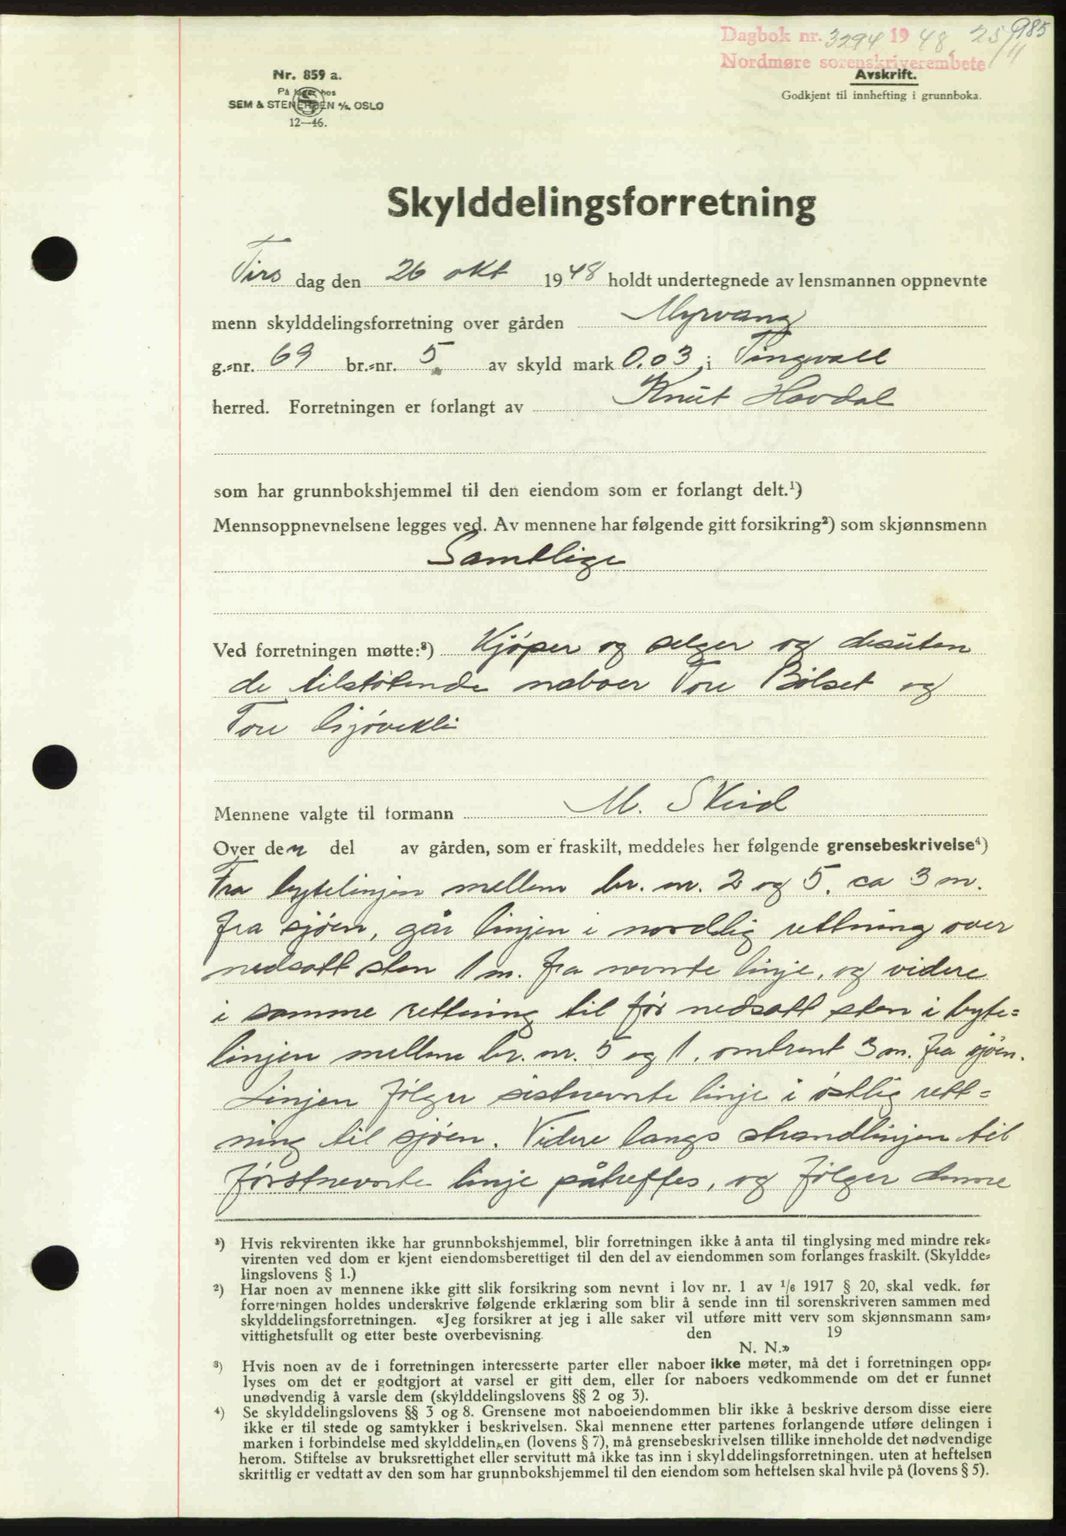 985
Dagbok nr. 3294 1948 25/11
Nordmøre sorenskriverembete
Nr. 859 a.
På lager hos
SEM & STENERSEN A/S, OSLO
12—46.
Avskrift.
Godkjent til innhefting i grunnboka.
Skylddelingsforretning
Tirs dag den 26 okt 1948 holdt undertegnede av lensmannen oppnevnte
menn skylddelingsforretning over gården Myrvang
g.-nr. 69 br.-nr. 5. av skyld mark 0.03 i Tingvoll
herred. Forretningen er forlangt av Knut Hovdal
som har grunnbokshjemmel til den eiendom som er forlangt delt.¹)
Mennsoppnevnelsene legges ved. Av mennene har følgende gitt forsikring²) som skjønnsmenn
Samtlige
Ved forretningen møtte:³) Kjøper og selger og desuten
de tilstøtende naboer Tore Bølset og
Tore
Mennene valgte til formann M. Skeid
Over den del av gården, som er fraskilt, meddeles her følgende grensebeskrivelse⁴)
Fra bytelinjen mellem br. nr. 2 og 5. ca 3 m.
fra sjøen, går linjen i nordlig rettning over
nedsatt sten 1 m. fra nevnte linje, og videre
i samme rettning til før nedsatt sten i byte=
linjen mellem br. nr. 5 og 1, omtrent 3 m. fra sjøen.
Linjen følger sistnevnte linje i østlig rett=
ning til sjøen. Videre langs strandlinjen til
førstnevnte linje påtreffes, og følger denne
¹) Hvis rekvirenten ikke har grunnbokshjemmel, blir forretningen ikke å anta til tinglysing med mindre rek-
virenten ved dom er kjent eiendomsberettiget til den del av eiendommen som forlanges fraskilt. (Skyldde-
lingslovens § 1.)
²) Har noen av mennene ikke gitt slik forsikring som nevnt i lov nr. 1 av 1/6 1917 § 20, skal vedk. før
forretningen holdes underskrive følgende erklæring som blir å sende inn til sorenskriveren sammen med
skylddelingsforretningen. «Jeg forsikrer at jeg i alle saker vil utføre mitt verv som skjønnsmann sam-
vittighetsfullt og etter beste overbevisning. den 19
N. N.»
³) Hvis noen av de i forretningen interesserte parter eller naboer ikke møter, må det i forretningen opp-
lyses om det er godtgjort at varsel er gitt dem, eller for naboers vedkommende om det er funnet
unødvendig å varsle dem (skylddelingslovens §§ 2 og 3).
⁴) Se skylddelingslovens §§ 3 og 8. Grensene mot naboeiendommen blir ikke å beskrive dersom disse eiere
ikke er til stede og samtykker i beskrivelsen. Skal mennene etter partenes forlangende utføre delingen i
marken i forbindelse med skylddelingen (lovens § 7), må grensebeskrivelsen tillike inneholde det nødvendige
herom. Stiftelse av bruksrettighet eller servitutt må ikke tas inn i skylddelingsforretningen. uten at heftelsen
skrittlig er vedtatt av den som har grunnbokshjemmel til den eiendom som heftelsen skal hvile på (lovens § 5).